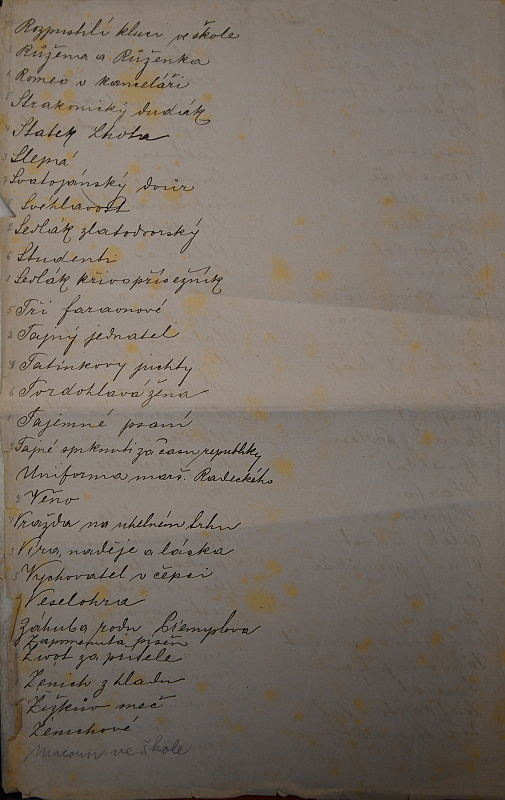 Rozpustilí kluci ve škole
Růžena a Růženka
Romeo v kanceláři
Strakonický dudák
Statek Lhota
Slepá
Svatojánský dvůr
Svéhlavost
Sedlák zlatodvorský
Studenti
Sedlák křivopřísežník
Tři faraonové
Tajný jednatel
Tatínkovy juchty
Tvrdohlavá žena
Tajemné psaní
Tajné spiknutí za času republiky
Uniforma marš. Radeckého
Věno
Vražda na uhelném trhu
Víra, naděje a láska
Vychovatel v čepci
Veselohra
Záhuba rodu Přemyslova
Zapomenutá píseň
Život za přítele
Ženich z hladu
Žižkův meč
Ženichové
ve škole